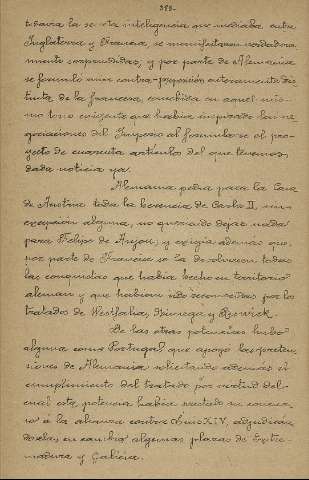 373.
tesara la secreta inteligencia que mediaba entre
Inglaterra y Francia, se manifestaron verdadera-
mente sorprendidas, y por parte de Alemania
se formuló una contra-proposición enteramente dis-
tinta de la francesa, concebida en aquel mis-
mo tono exigente que había inspirado las ne-
gociaciones del Imperio al formularse el pro-
yecto de cuarenta artículos del que tenemos
dada noticia ya.
Alemania pedía para la Casa
de Austria toda la herencia de Carlos II, sin
excepción alguna, no queriendo dejar nada
para Felipe de Anjou, y exigía además que
por parte de Francia se la devolvieran todas
las conquistas que había hecho en territorio
alemán y que habían sido reconocidas por los
tratados de Westfalia, Nimega y Riswick.
De las otras potencias hubo
alguna como Portugal, que apoyó las preten-
siones de Alemania solicitando además el
cumplimiento del tratado por virtud del
cual esta potencia había prestado su concur-
so á la alianza contra Luis XIV, adjudicán-
dosela, en cambio algunas plazas de Extre-
madura y Galicia.